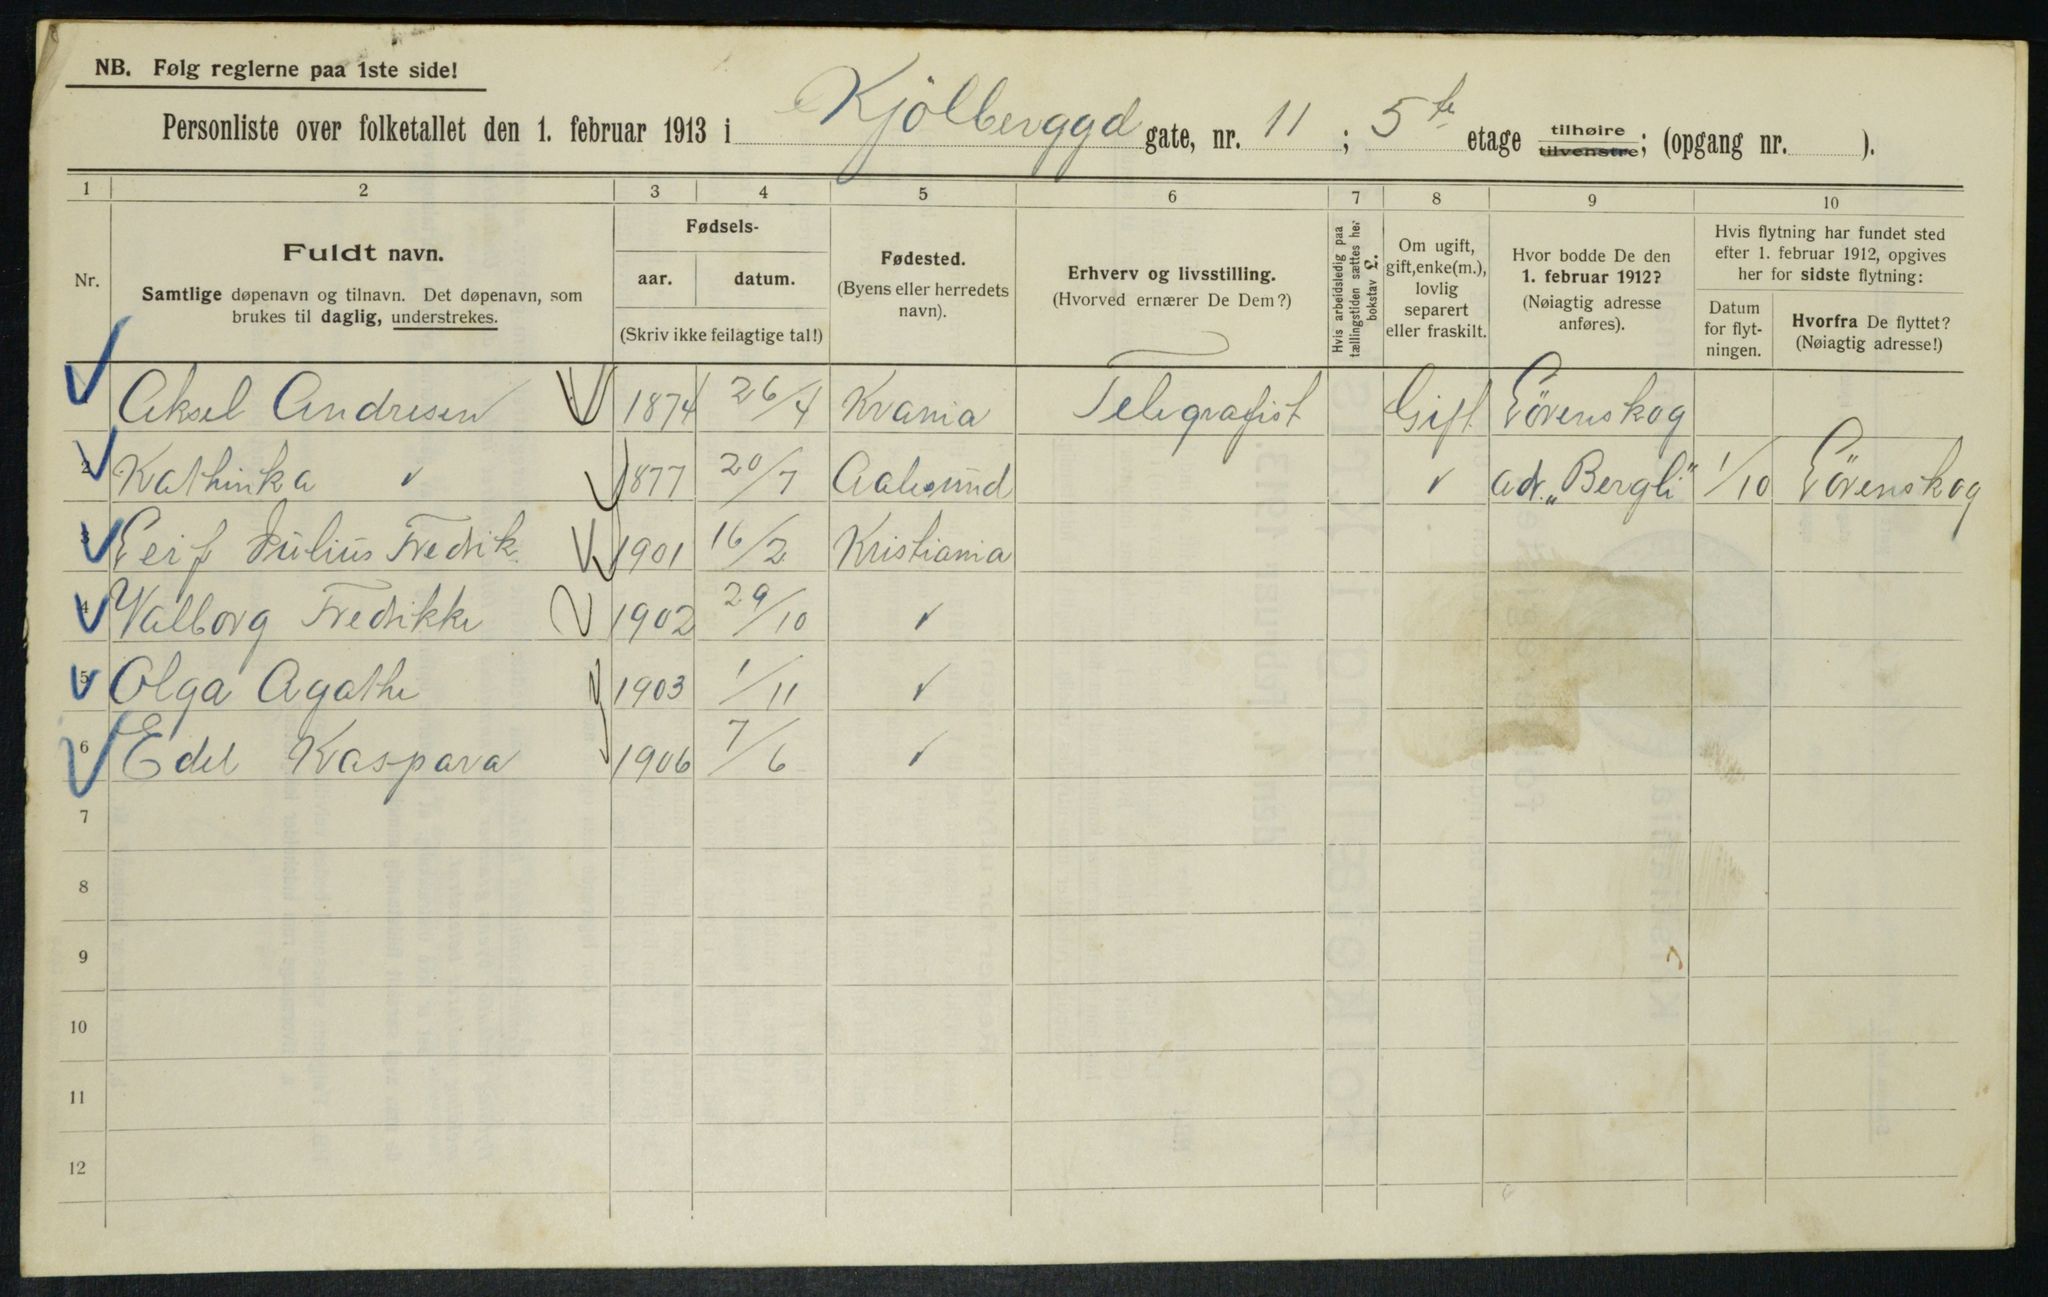 NB. Følg reglerne paa 1ste side!
Personliste over folketallet den 1. februar 1913 i Kjölberggd gate, nr. 11 ; 5 te etage tilhøire tilvenstre; (opgang nr. ).
1 2 3 4 5 6 7 8 9 10
Nr.
Fuldt navn.
Samtlige døpenavn og tilnavn. Det døpenavn, som
brukes til daglig, understrekes.
Fødsels-
aar. datum.
(Skriv ikke feilagtige tal!)
Fødested.
(Byens eller herredets
navn).
Erhverv og livsstilling.
(Hvorved ernærer De Dem?)
Hvis arbeidsledig paa
tællingstiden sættes her
bokstav L.
Om ugift,
gift, enke(m.),
lovlig
separert
eller fraskilt.
Hvor bodde De den
1. februar 1912?
(Nøiagtig adresse
anføres).
Hvis flytning har fundet sted
efter 1. februar 1912, opgives
her for sidste flytning:
Datum
for flyt-
ningen.
Hvorfra De flyttet?
(Nøiagtig adresse!)
Aksel Andresen 1874 26/4 Krania Telegrafist Gift Lörenskog
2 Kathinka ✓ 1877 20/7 Aalesund ✓ adr. „Bergli" 1/10 Lörenskog
3 Leif Julius Fredrik 1901 16/2 Kristiania
4 Valborg Fredrikke 1902 29/10 ✓
5 Olga Agathe 1903 1/11 ✓
6 Edel Kaspara 1906 7/6 ✓
7
8
9
10
11
12